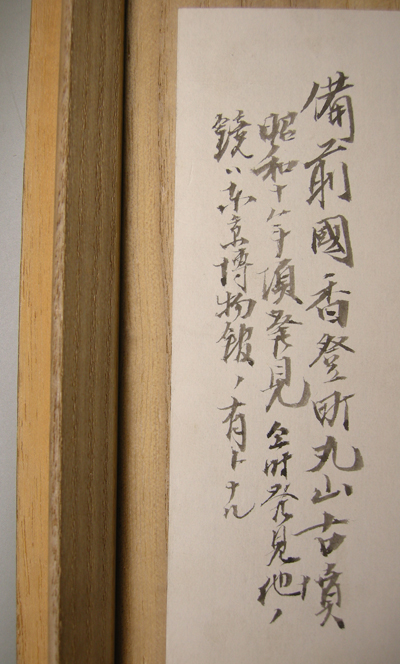 備前國香登町丸山古墳
昭和十一年頃発見仝時発見他ノ
鏡ハ東京博物館ノ有トナル